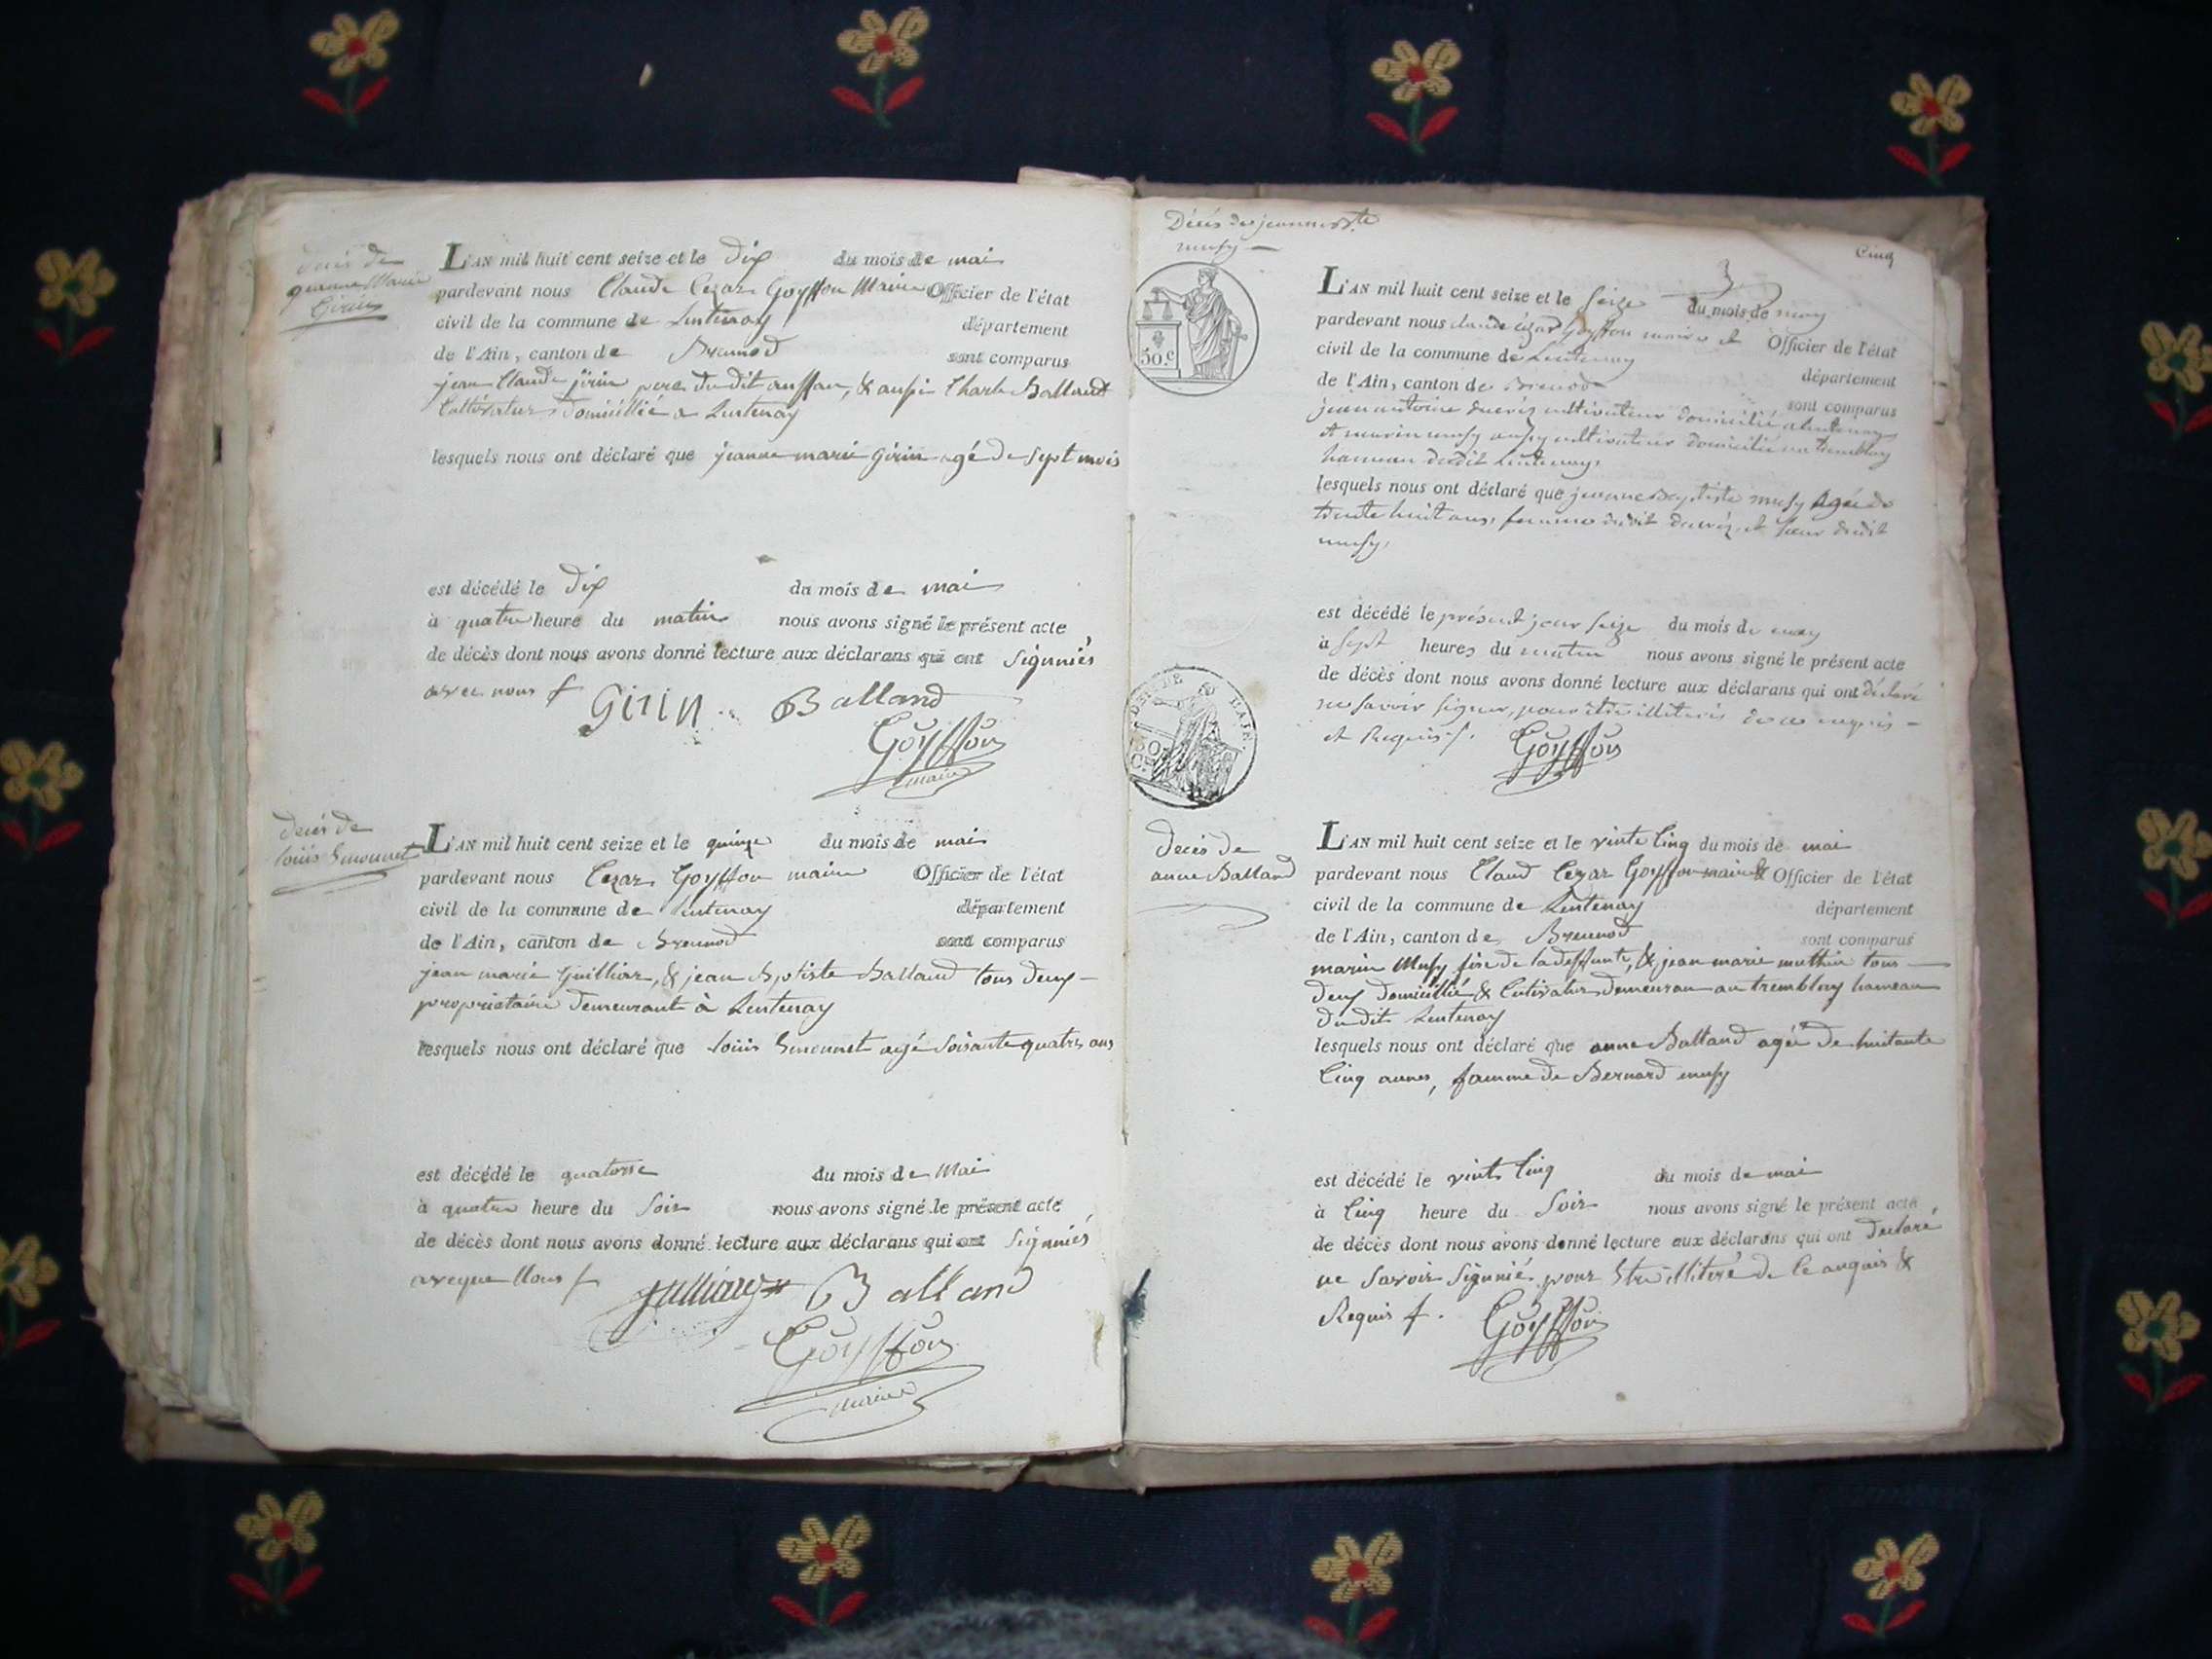 decés de
jeanne Marie
Girin
L'AN mil huit cent seize et le dix du mois de mai
pardevant nous Claude Cezar Goyffon Maire Officier de l'état
civil de la commune de Lentenay département
de l'Ain, canton de Brennod sont comparus
jean Claude jirin pere dudit anffan, & aussi Charle Balland
Cultivateur domicillié a Lentenay
lesquels nous ont déclaré que jeanne marie girin agé de sept mois
est décédé le dix du mois de mai
à quatre heure du matin nous avons signé le présent acte
de décès dont nous avons donné lecture aux déclarans qui ont signniés
avec nous
Girin Balland
Goyffon
maire
decés de
loüis Smonnet
L'AN mil huit cent seize et le quinze du mois de mai
pardevant nous Cezar Goyffon maire Officier de l'état
civil de la commune de Lentenay département
de l'Ain, canton de Brennod sont comparus
jean marie juilliar, & jean Bptiste Balland tous deux
propriétaire demeurant à Lentenay
lesquels nous ont déclaré que loüis Smonnet agé soisante quatre ans
est décédé le quatorse du mois de Mai
à quatre heure du soir nous avons signé le présent acte
de décès dont nous avons donné lecture aux déclarans qui ont signniés
aveque Nous
juilliard Balland
Goyffon
maire
Décés de jeanne Bte
musy
Cinq
30.c
L'AN mil huit cent seize et le seize du mois de may
pardevant nous claude cézar Goyffon maire et Officier de l'état
civil de la commune de Lentenay département
de l'Ain, canton de Brenod sont comparus
jean antoine ducrèz cultivateur domicilié a lentenay
et marin musy cultivateur domicilié au tremblay
hameau dudit Lentenay,
lesquels nous ont déclaré que jeanne Baptiste musy Agée de
trente huit ans, femme dudit ducrèz, et sœur dudit
musy,
est décédé le présent jour seize du mois de may
à sept heures du matin nous avons signé le présent acte
de décès dont nous avons donné lecture aux déclarans qui ont déclaré
ne savoir signer, pour être illiterés de ce enquis
et Requis
Goyffon
decés de
anne Balland
L'AN mil huit cent seize et le vinte Cinq du mois de mai
pardevant nous Claud Cezar Goyffon maire & Officier de l'état
civil de la commune de Lentenay département
de l'Ain, canton de Brennod sont comparus
marin Musy fis de la deffunte, & jean marie mathieu tous
deux domicillié & Cutivateur demeuran au tremblay hameau
du dit Lentenay
lesquels nous ont déclaré que anne Balland agée de huitante
Cinq annes, famme de Bernard musy
est décédé le vinte Cinq du mois de mai
à Cinq heure du Soir nous avons signé le présent acte
de décès dont nous avons donné lecture aux déclarans qui ont declaré
ne savoir signnié pour Etre illiteré de Ce anquis &
Requis
Goyffon